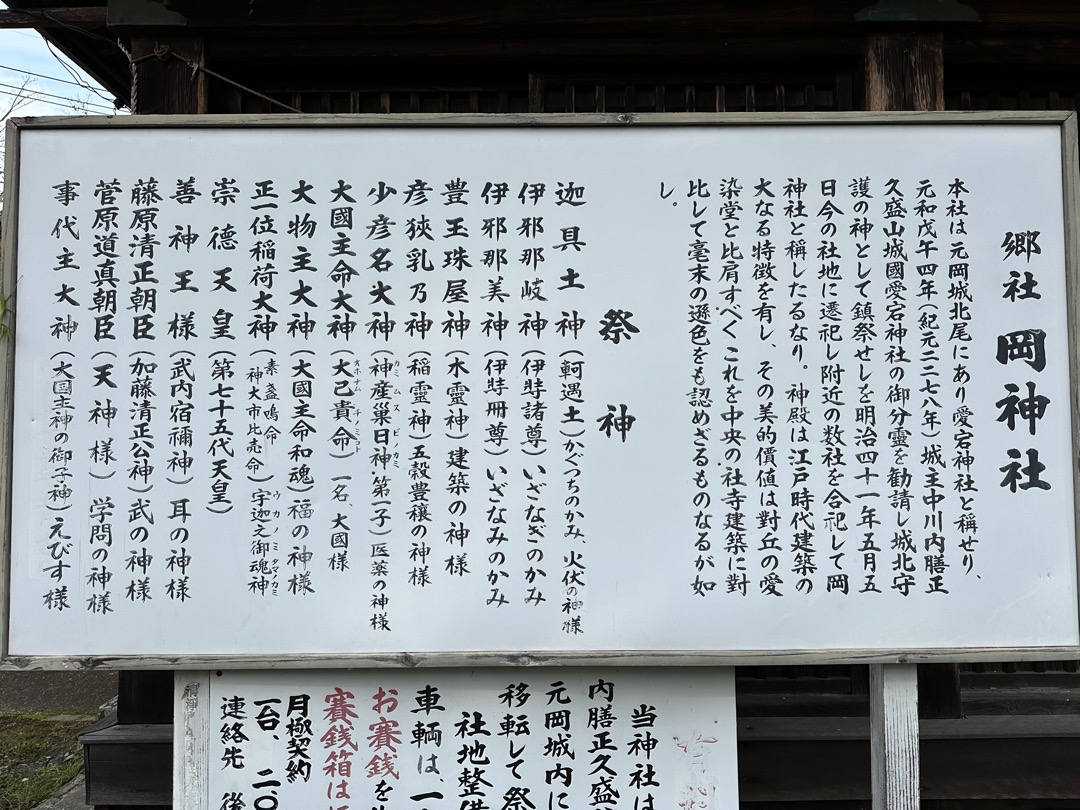 郷社 岡神社
本社は元岡城北尾にあり愛宕神社と稱せり、
元和戊午四年(紀元二二七八年)城主中川内膳正
久盛山城國愛宕神社の御分霊を勧請し城北守
護の神として鎮祭せしを明治四十一年五月五
日今の社地に遷祀し附近の数社を合祀して岡
神社と稱したるなり。神殿は江戸時代建築の
大なる特徴を有し、その美的價値は對丘の愛
染堂と比肩すべくこれを中央の社寺建築に對
比して毫末の遜色をも認めざるものなるが如
し。
祭神
迦具土神(軻遇土)かぐつちのかみ、火伏の神様
伊邪那岐神(伊弉諸尊)いざなぎのかみ
伊邪那美神(伊弉冊尊)いざなみのかみ
豊玉珠屋神(木霊神)建築の神様
彦狹乳乃神(稲霊神)五穀豊穣の神様
少彦名大神(神産巣日神第一子)医薬の神様
カミムスビノカミ
大國主命大神(大己貴命)一名、大國様
オホナムチノミコト
大物主大神(大國主命和魂)福の神様
正一位稲荷大神(素盞嗚命 神大市比売命)宇迦之御魂神
ウカノミタマノカミ
崇徳天皇(第七十五代天皇)
善神王様(武内宿禰神)耳の神様
藤原清正朝臣(加藤清正公神)武の神様
菅原道真朝臣(天神様)学問の神様
事代主大神(大国主神の御子神)えびす様
当神社は
内膳正久盛
元岡城内に
移転して祭
社地整備
車輌は、一
お賽銭を
賽銭箱は
月極契約
一台、二〇
連絡先 後